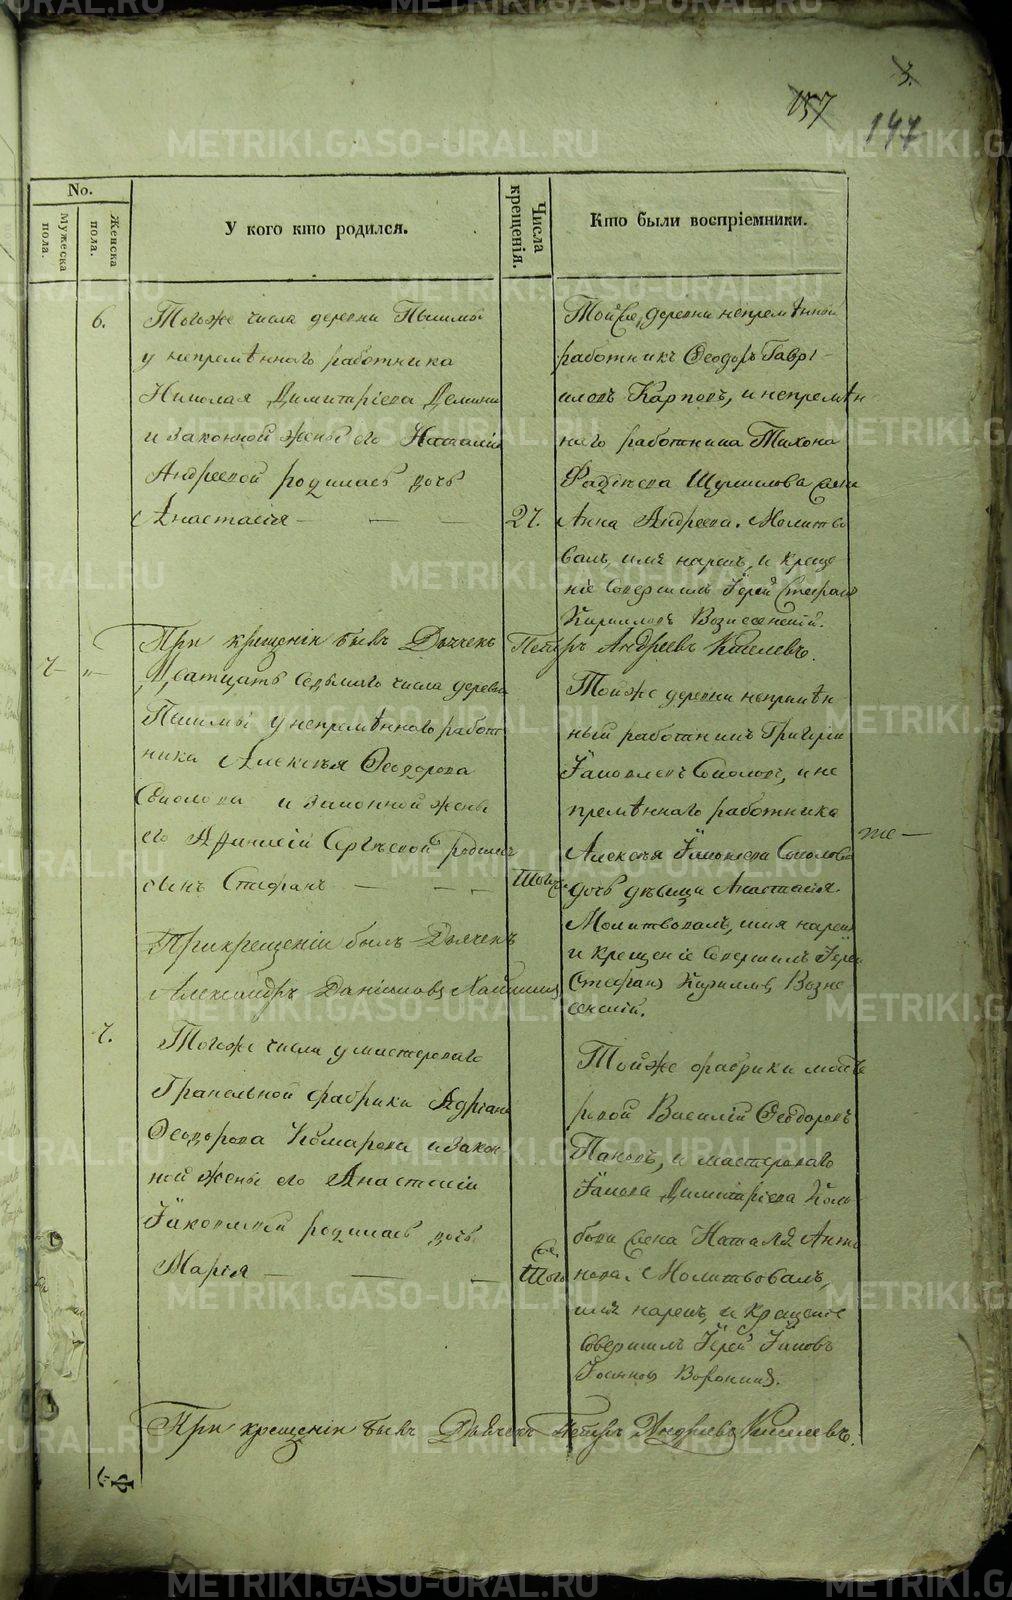 3.
157
147
No.
Мужеска пола.
Женска пола.
У кого кто родился.
Числа крещенія.
Кто были воспріемники.
6.
Тогоже числа деревни Пышмы
у непремѣннаго работника
Николая Димитріева Демина
и законной жены его Наталіи
Андреевой родилась дочь
Анастасія — — —
27.
Тойже деревни непремѣнной
работникъ Ѳеодоръ Гаврі-
иловъ Карповъ, и непремѣн-
наго работника Тихона
Фадѣева Шумилова жена
Анна Андреева. Молитво
валъ, имя нарекъ, и креще
ніе совершилъ Іерей Стефанъ
Кирилловъ Вознесенскій.
При крещеніи бывъ Дьячекъ Петръ Андреевъ Киселевъ.
7 — „
Дватцать седьмаго числа деревни
Пышмы у непремѣннаго работ
ника Алексѣя Ѳеодорова
Соколова и законной жены
его Афанасіи Сергѣевой родился
сынъ Стефанъ — — —
тогож
Тойже деревни непремѣн
ный работникъ Григорій
Яковлевъ Соколовъ, и не
премѣннаго работника
Алексѣя Соколова
же —
дочь дѣвица Анастасія.
Молитвовалъ, имя нарекъ
и крещеніе совершилъ Іерей
Стефанъ Кирилловъ Возне
сенскій.
При крещеніи былъ Дьячекъ
Александръ Даніиловъ
7.
Тогоже числа у мастероваго
Гранильной фабрики Адріана
Ѳеодорова Комарова и закон
ной жены его Анастасіи
Яковлевой родилась дочь
Марія — — —
тогож
Тойже фабрики масте
ровой Василій Ѳеодоровъ
Пановъ, и мастероваго
Якова Димитріева
жена Наталія Анто
нова. Молитвовалъ,
имя нарекъ, и крещеніе
совершилъ Іерей Іаковъ
Іоанновъ Воронинъ.
При крещеніи бывъ Дьячекъ Петръ Андреевъ Киселевъ.